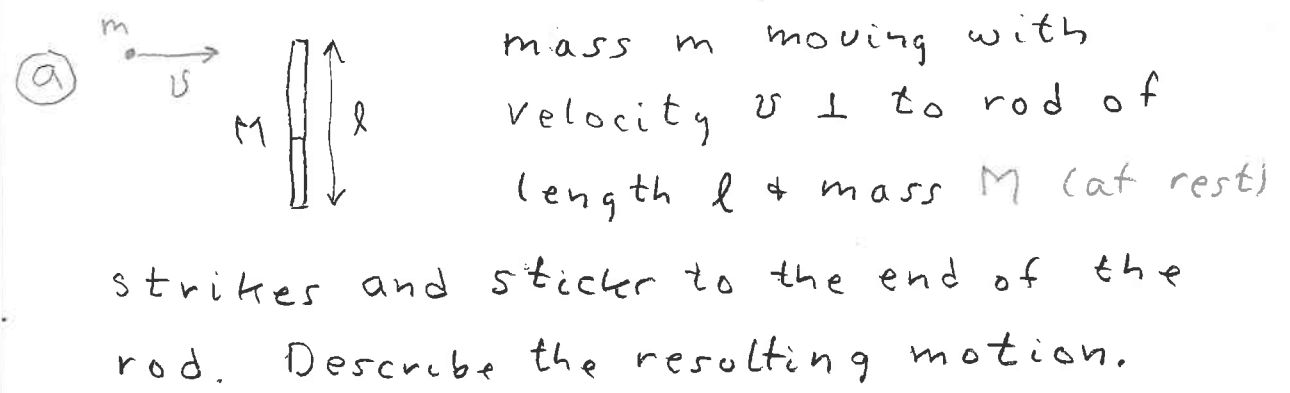 m
ⓐ
v
M
l
mass m moving with
velocity v ⊥ to rod of
length l & mass M (at rest)
strikes and sticks to the end of the
rod. Describe the resulting motion.